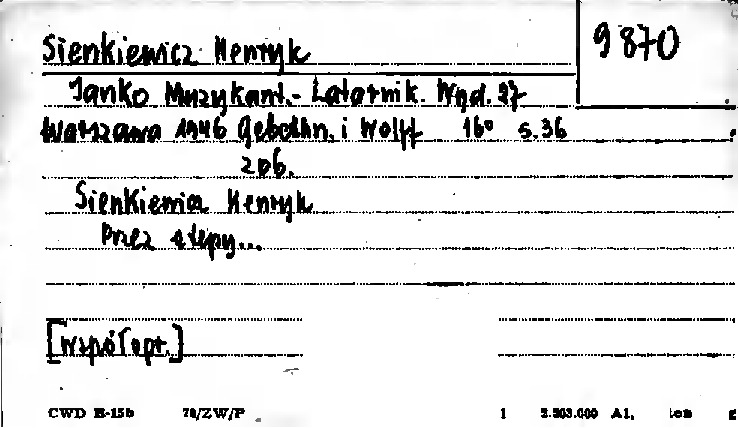 9870
Sienkiewicz Henryk
Janko Muzykant.- Latarnik. Wyd. 27
Warszawa 1946 Gebethn. i Wolff 16° s.36
zob.
Sienkiewicz Henryk
Przez stepy...
[współopr.]
CWD E-15b 78/ZW/P 1 A1,